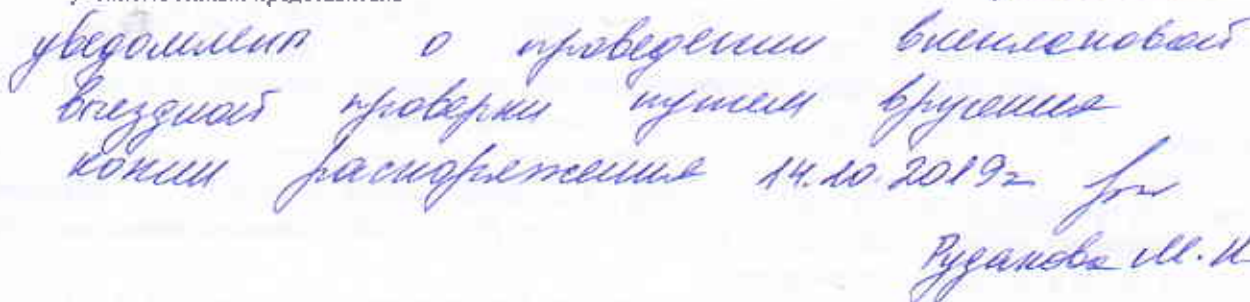 уведомлена о проведении внеплановой
выездной проверки путем вручения
копии распоряжения 14.10.2019г
Рудакова М.Н